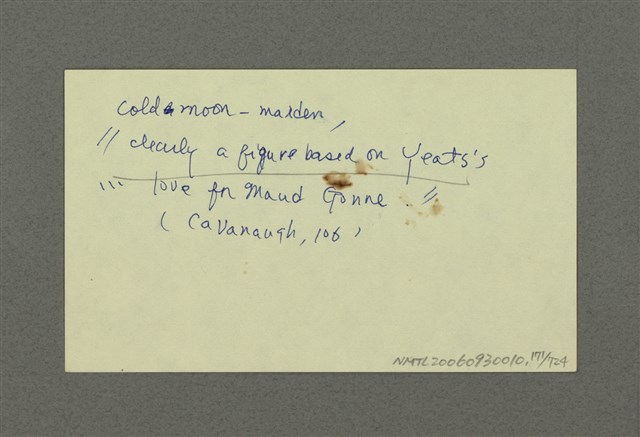 cold moon - maiden,
" clearly a figure based on Yeats's
... love for Maud Gonne . "
( Cavanaugh, 106 )
NMTL20060930010.171/724